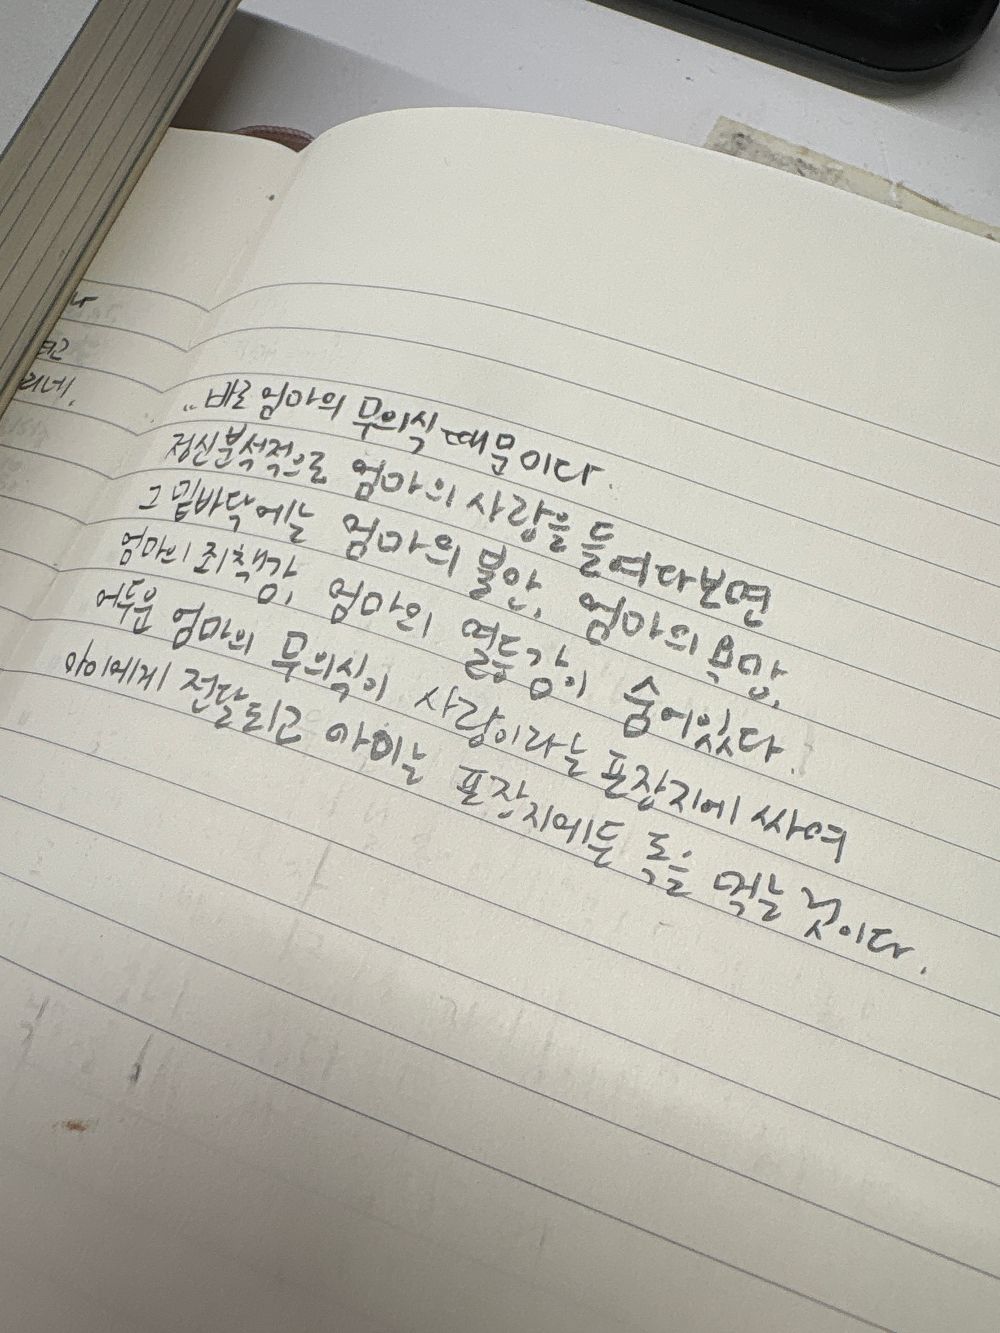 나
되고
리네.
.. 바로 엄마의 무의식 때문이다.
정신분석적으로 엄마의 사랑을 들여다보면
그 밑바닥에는 엄마의 불안, 엄마의 욕망,
엄마의 죄책감, 엄마의 열등감이 숨어있다.
어두운 엄마의 무의식이 사랑이라는 포장지에 싸여
아이에게 전달되고 아이는 포장지에든 독을 먹는 것이다.